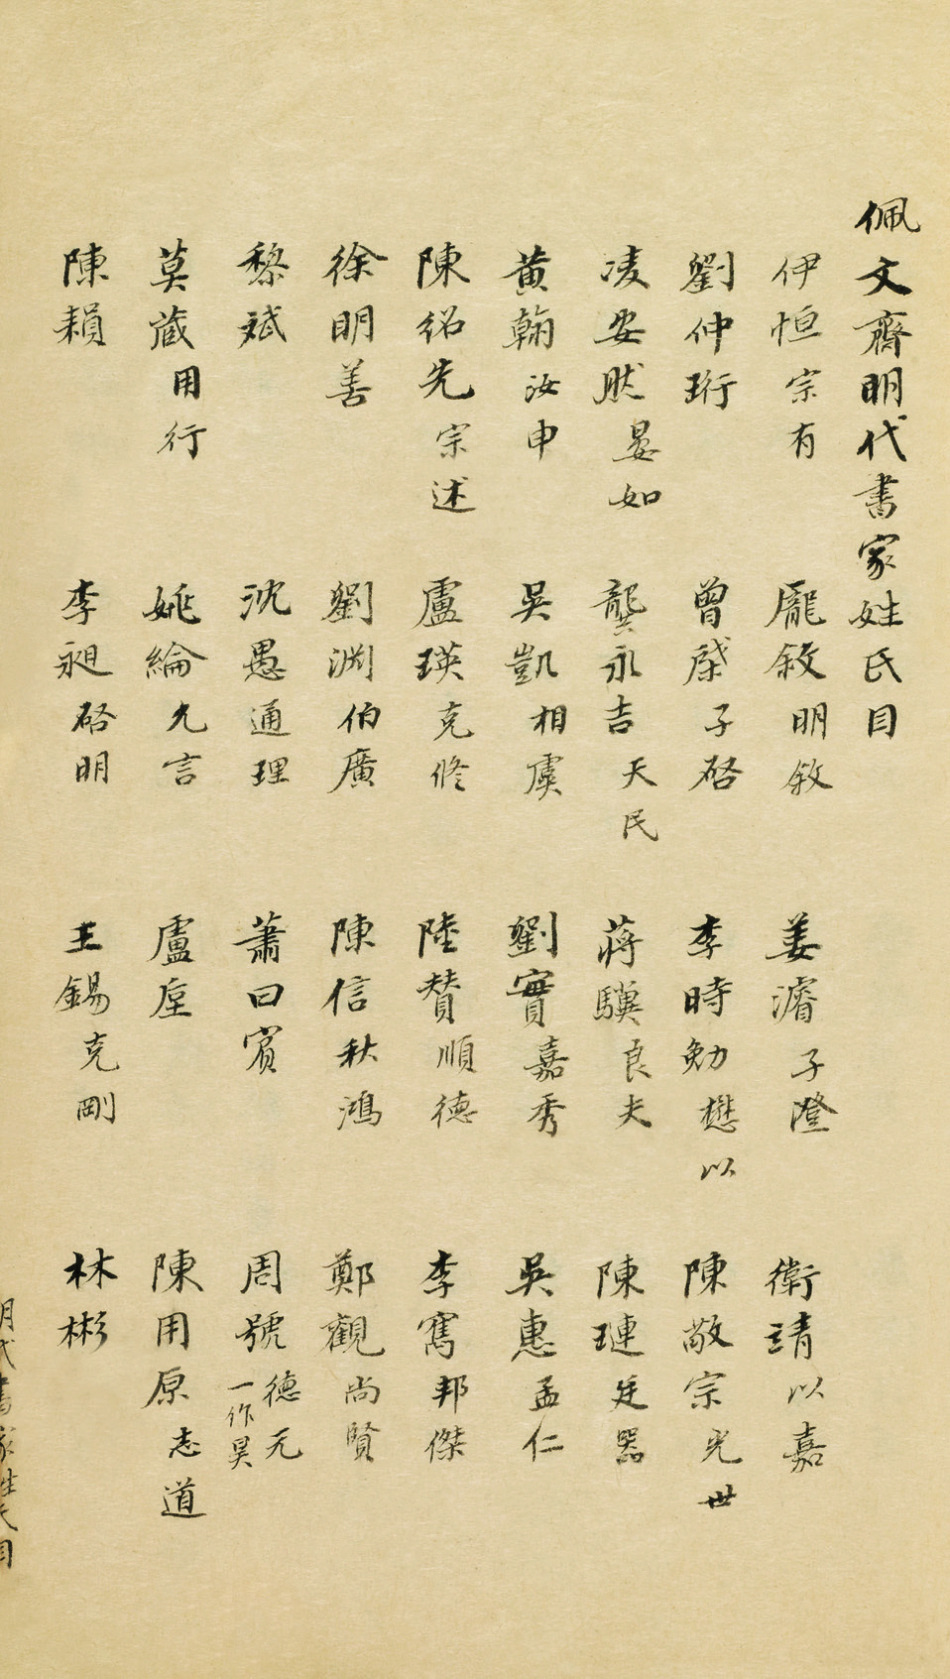 佩文齋明代書家姓氏目
伊恒宗有 龐敘明敘 姜濬子澄 衛靖以嘉
劉仲珩 曾棨子啓 李時勉懋以 陳敬宗光世
凌安肰晏如 龔永吉天民 蔣驥良夫 陳璉廷器
黃翰汝申 吳凱相虞 劉實嘉秀 吳惠孟仁
陳紹先宗述 盧瑛克修 陸贊順德 李寯邦傑
徐明善 劉淵伯廣 陳信秋鴻 鄭觀尚賢
黎斌 沈愚通理 蕭曰賓 周號德元一作昊
莫蕆用行 姚綸允言 盧 陳用原志道
陳頛 李昶啓明 王錫克剛 林彬
明代書家姓氏目